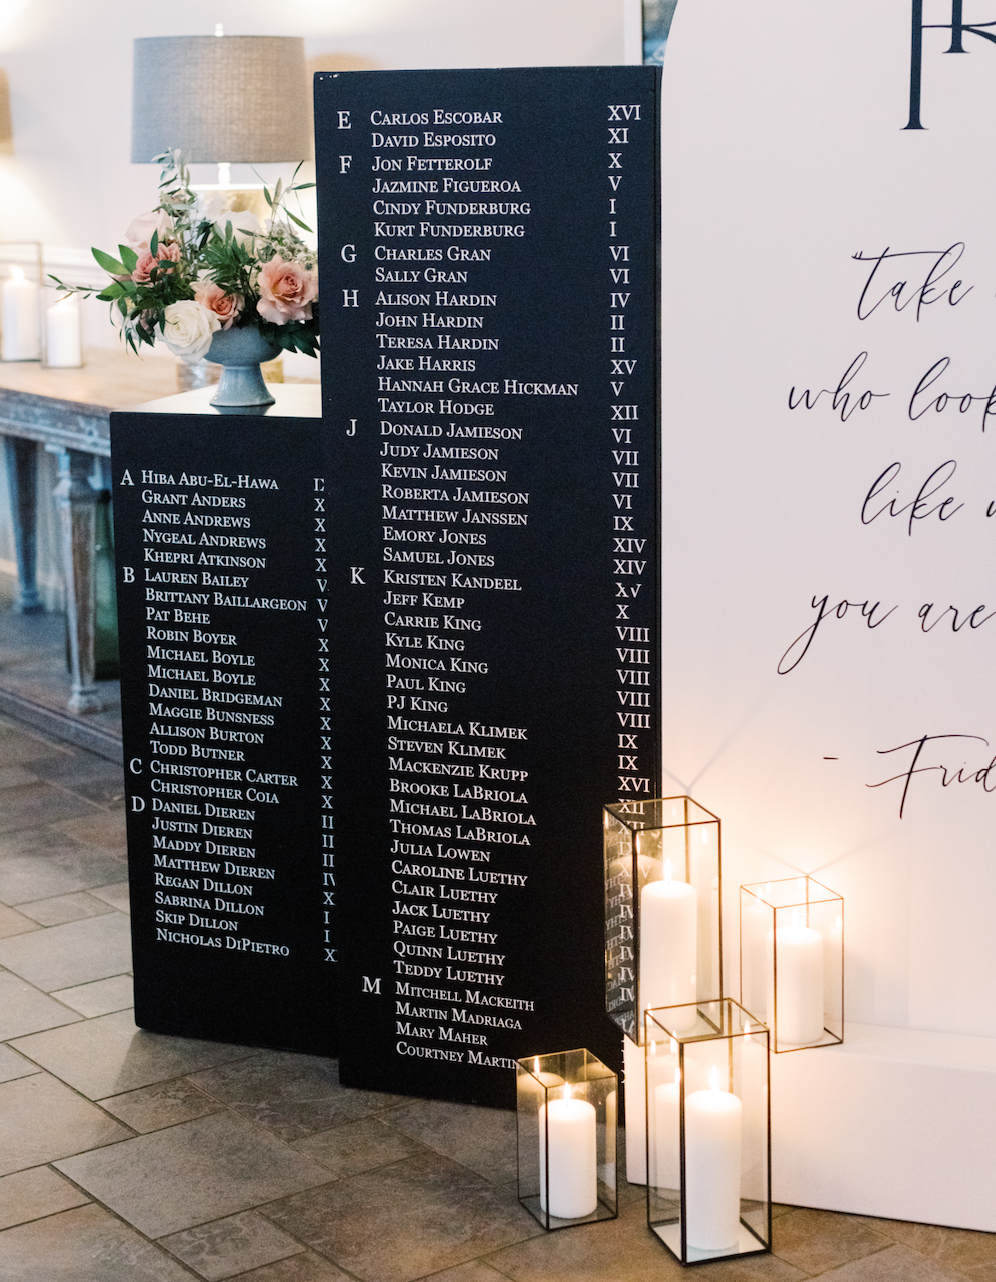 A HIBA ABU-EL-HAWA
GRANT ANDERS
ANNE ANDREWS
NYGEAL ANDREWS
KHEPRI ATKINSON
B LAUREN BAILEY
BRITTANY BAILLARGEON
PAT BEHE
ROBIN BOYER
MICHAEL BOYLE
MICHAEL BOYLE
DANIEL BRIDGEMAN
MAGGIE BUNSNESS
ALLISON BURTON
TODD BUTNER
C CHRISTOPHER CARTER
CHRISTOPHER COIA
D DANIEL DIEREN
JUSTIN DIEREN
MADDY DIEREN
MATTHEW DIEREN
REGAN DILLON
SABRINA DILLON
SKIP DILLON
NICHOLAS DIPIETRO
E CARLOS ESCOBAR XVI
DAVID ESPOSITO XI
F JON FETTEROLF X
JAZMINE FIGUEROA V
CINDY FUNDERBURG I
KURT FUNDERBURG I
G CHARLES GRAN VI
SALLY GRAN VI
H ALISON HARDIN IV
JOHN HARDIN II
TERESA HARDIN II
JAKE HARRIS XV
HANNAH GRACE HICKMAN V
TAYLOR HODGE XII
J DONALD JAMIESON VI
JUDY JAMIESON VII
KEVIN JAMIESON VII
ROBERTA JAMIESON VI
MATTHEW JANSSEN IX
EMORY JONES XIV
SAMUEL JONES XIV
K KRISTEN KANDEEL XV
JEFF KEMP X
CARRIE KING VIII
KYLE KING VIII
MONICA KING VIII
PAUL KING VIII
PJ KING VIII
MICHAELA KLIMEK IX
STEVEN KLIMEK IX
MACKENZIE KRUPP XVI
BROOKE LABRIOLA XII
MICHAEL LABRIOLA
THOMAS LABRIOLA
JULIA LOWEN
CAROLINE LUETHY
CLAIR LUETHY
JACK LUETHY
PAIGE LUETHY
QUINN LUETHY
TEDDY LUETHY
M MITCHELL MACKEITH
MARTIN MADRIAGA
MARY MAHER
COURTNEY MARTIN
"take
who look
like
you are
- Frid